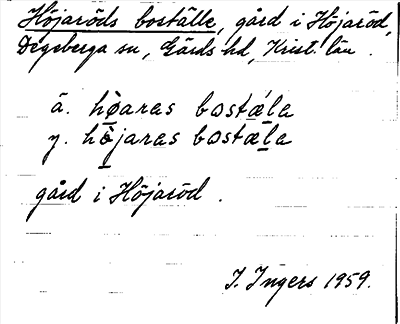 Höjaröds boställe, gård i Höjaröd,
Degeberga sn, Gärds hd, Krist. län.
ä. hø̀aras bostǽla
y. hø̀jaras bostǽla
gård i Höjaröd.
I. Ingers 1959.